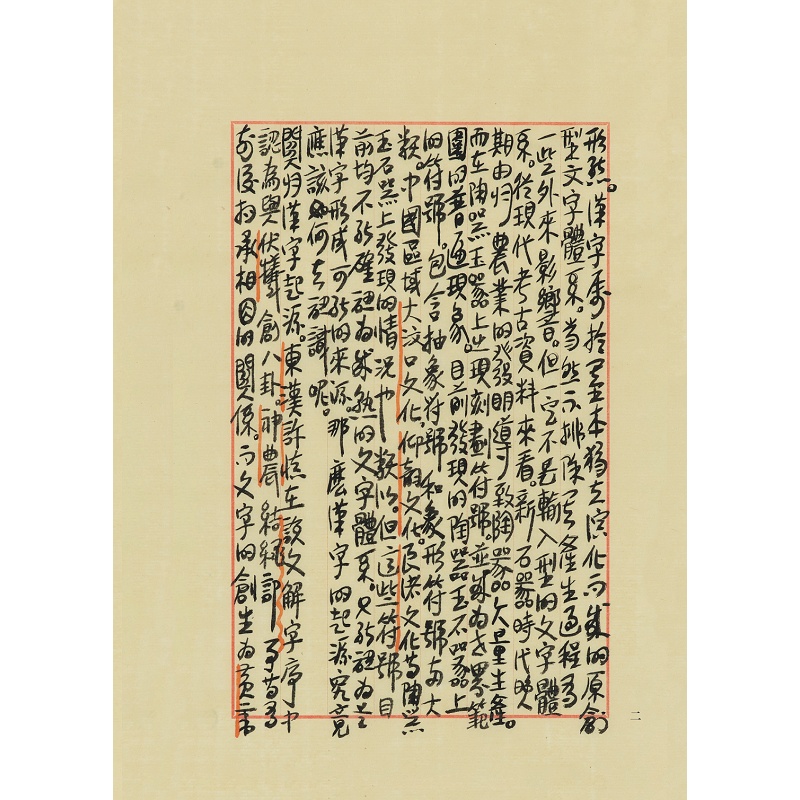 形態。漢字屬於基本獨立演化而成的原創
型文字體系。當然不排除其產生過程有
一些外來影響音。但一定不是輸入型的文字體
系。從現代考古資料來看。新石器時代晚
期由归農業的發明導致陶器大量生產。
而在陶器玉器上出現刻劃符號。並成為世界範
圍的普遍現象。目前發現的陶器玉石器上
的符號。包含抽象符號和象形符號兩大
類。中國區域大汶口文化,仰韶文化。良渚文化等陶器
玉石器上發現的情況也類似。但這些符號目
前均不能確認為成熟的文字體系。只能認為是
漢字形成可能的來源。那麼漢字的起源究竟
應該如何去認識呢。
關归漢字起源。東漢許慎在說文解字序中
認為與伏犧創八卦。神農結繩記事等有
前後相承相因的關係。而文字的創生為黃帝
二